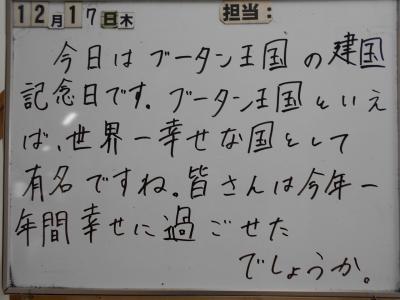 12月17日木 担当:
今日はブータン王国の建国
記念日です。ブータン王国といえ
ば、世界一幸せな国として
有名ですね。皆さんは今年一
年間幸せに過ごせた
でしょうか。